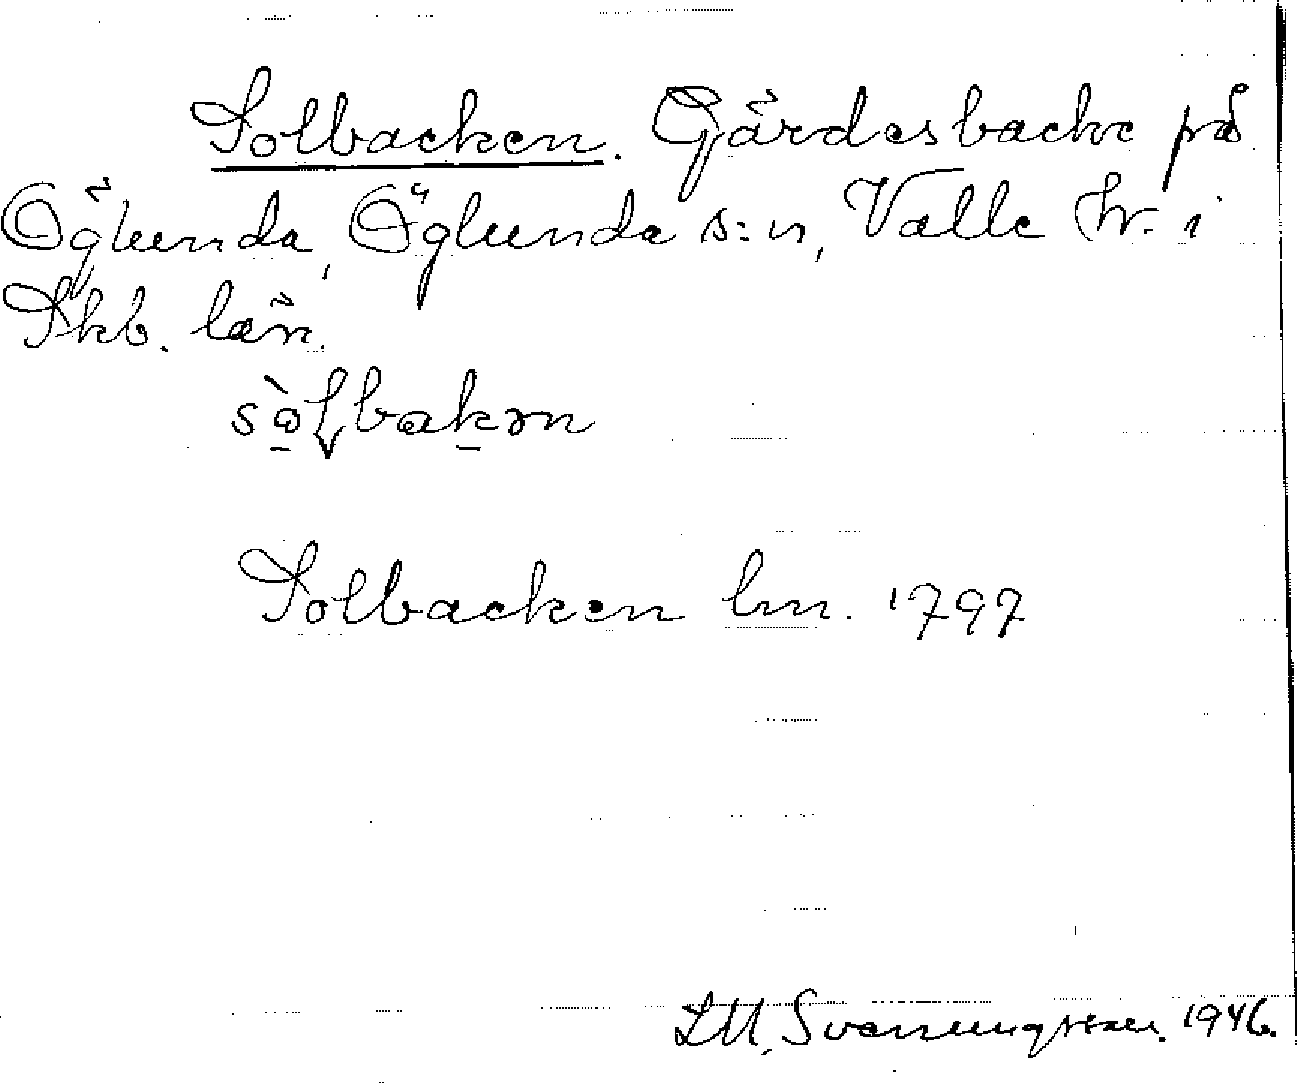 Solbacken. Gärdesbacke på
Öglunda, Öglunda s:n, Valle hr. i
Skb. län.
sòłbakən
Solbacken lm. 1797
LM. Svenungsson. 1946.